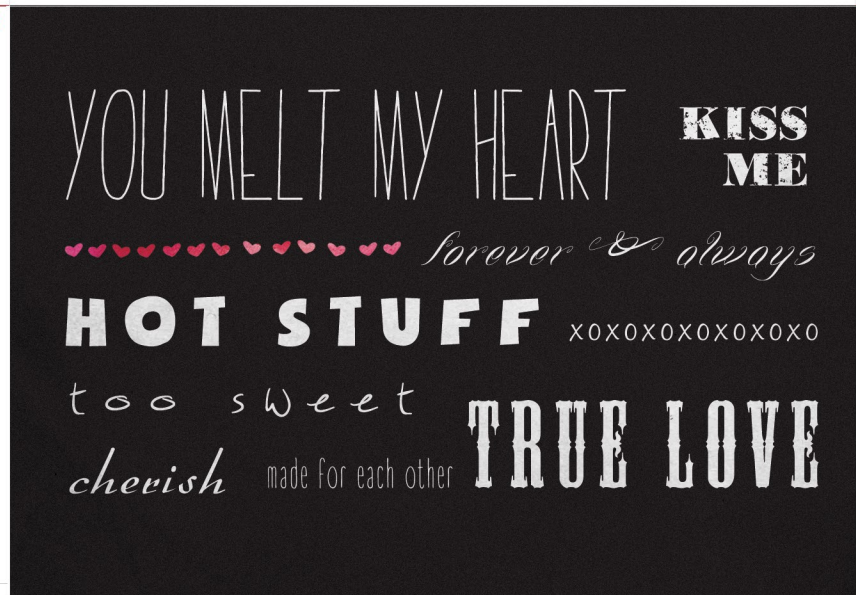 YOU MELT MY HEART
KISS
ME
forever & always
HOT STUFF
xoxoxoxoxoxoxo
too sweet
TRUE LOVE
cherish
made for each other